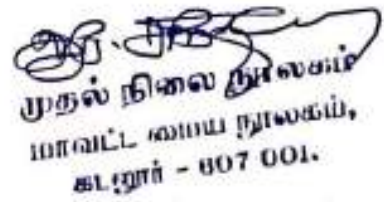 முதல் நிலை நூலகம்
மாவட்ட மைய நூலகம்,
கடலூர் - 607 001.